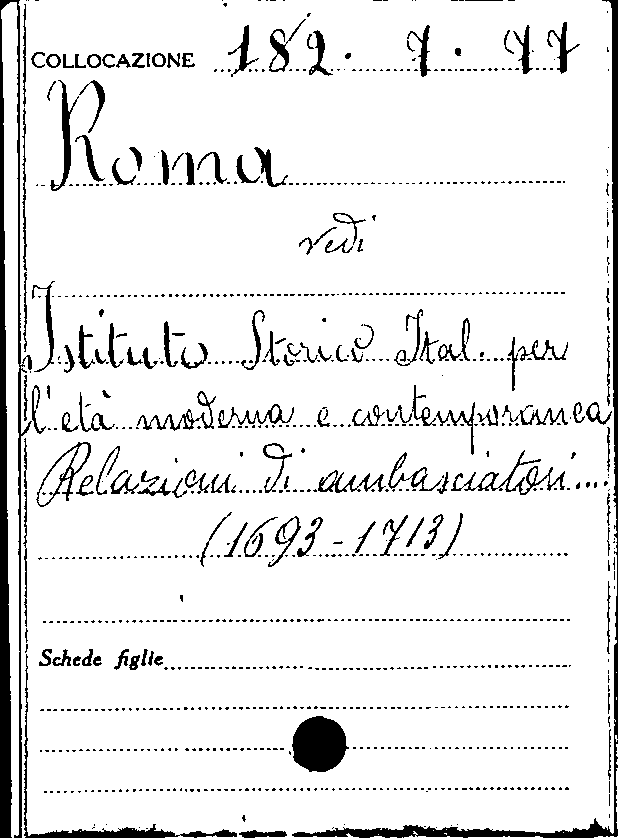 COLLOCAZIONE 182. 7. 77
Roma
vedi
Istituto Storico Ital. per
l'età moderna e contemporanea
Relazioni di ambasciatori....
(1693-1713)
Schede figlie